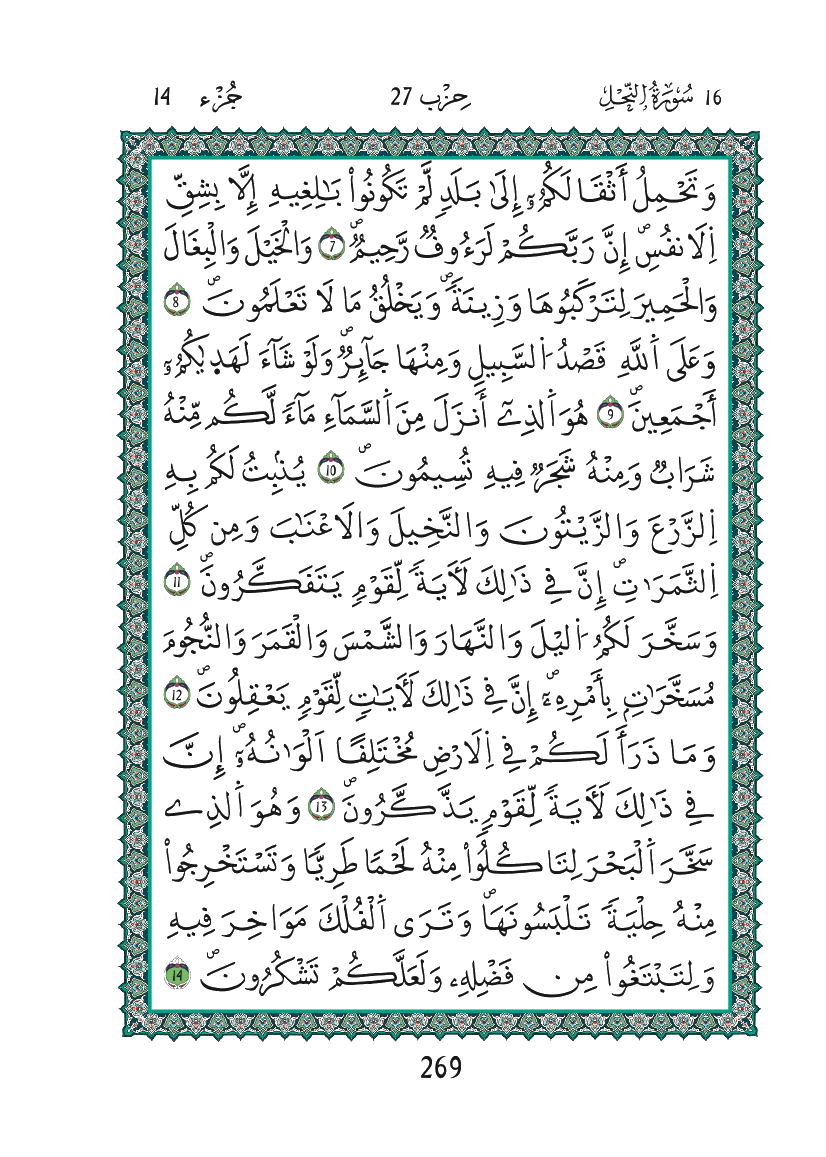 16 سُورَةُ النَّحْلِ حِزْب 27 جُزْء 14
وَتَحْمِلُ أَثْقَالَكُمُۥٓ إِلَىٰ بَلَدٖ لَّمْ تَكُونُواْ بَٰلِغِيهِ إِلَّا بِشِقِّ
اِ۬لَانفُسِۖ إِنَّ رَبَّكُمْ لَرَءُوفٞ رَّحِيمٞۖ 7 وَالْخَيْلَ وَالْبِغَالَ
وَالْحَمِيرَ لِتَرْكَبُوهَا وَزِينَةٗۖ وَيَخْلُقُ مَا لَا تَعْلَمُونَۖ 8
وَعَلَى اَ۬للَّهِ قَصْدُ اُ۬لسَّبِيلِ وَمِنْهَا جَآئِرٞۖ وَلَوْ شَآءَ لَهَد۪يٰكُمُۥٓ
أَجْمَعِينَۖ 9 هُوَ اَ۬لذِےٓ أَنزَلَ مِنَ اَ۬لسَّمَآءِ مَآءٗ لَّكُم مِّنْهُ
شَرَابٞ وَمِنْهُ شَجَرٞ فِيهِ تُسِيمُونَۖ 10 يُنۢبِتُ لَكُم بِهِ
اِ۬لزَّرْعَ وَالزَّيْتُونَ وَالنَّخِيلَ وَالَاعْنَٰبَ وَمِن كُلِّ
اِ۬لثَّمَرَٰتِۖ إِنَّ فِے ذَٰلِكَ لَأٓيَةٗ لِّقَوْمٖ يَتَفَكَّرُونَۖ 11
وَسَخَّرَ لَكُمُ اُ۬ليْلَ وَالنَّهَارَ وَالشَّمْسَ وَالْقَمَرَ وَالنُّجُومَ
مُسَخَّرَٰتِۢ بِأَمْرِهِۦٓۖ إِنَّ فِے ذَٰلِكَ لَأٓيَٰتٖ لِّقَوْمٖ يَعْقِلُونَۖ 12
وَمَا ذَرَأَ لَكُمْ فِے اِ۬لَارْضِ مُخْتَلِفاً اَلْوَٰنُهُۥٓۖ إِنَّ
فِے ذَٰلِكَ لَأٓيَةٗ لِّقَوْمٖ يَذَّكَّرُونَۖ 13 وَهُوَ اَ۬لذِے
سَخَّرَ اَ۬لْبَحْرَ لِتَاكُلُواْ مِنْهُ لَحْماٗ طَرِيّاٗ وَتَسْتَخْرِجُواْ
مِنْهُ حِلْيَةٗ تَلْبَسُونَهَاۖ وَتَرَى اَ۬لْفُلْكَ مَوَاخِرَ فِيهِ
وَلِتَبْتَغُواْ مِن فَضْلِهِۦ وَلَعَلَّكُمْ تَشْكُرُونَۖ 14
269